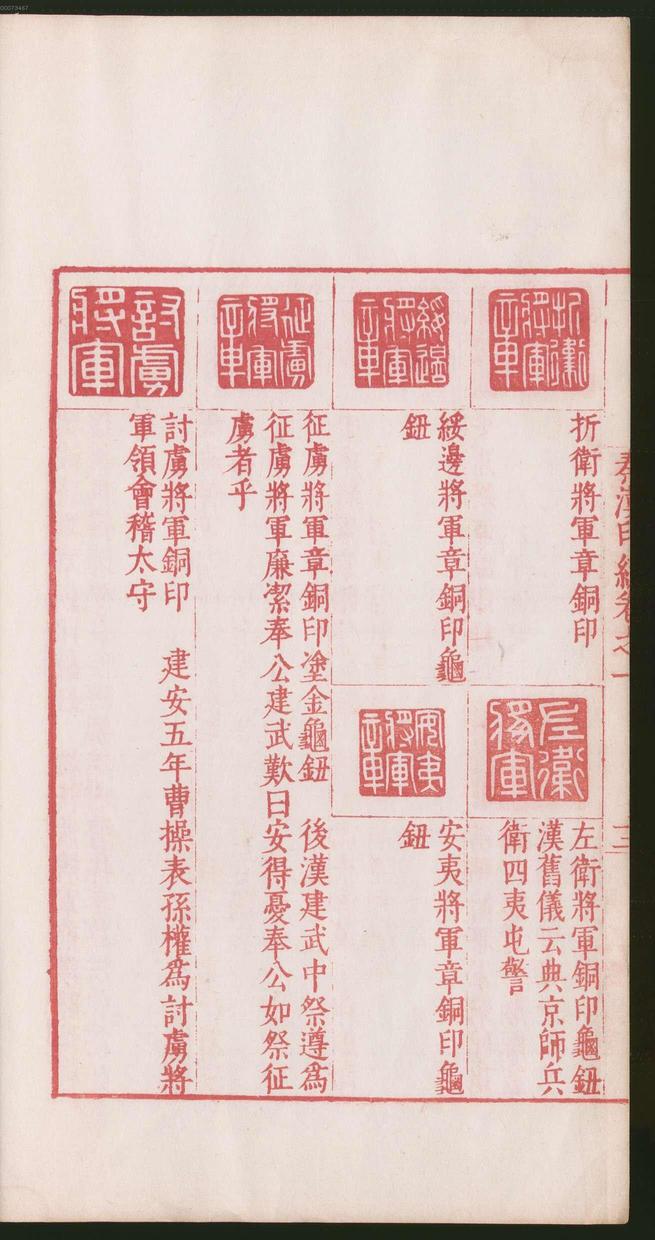 00073467
秦漢印統卷之一
三
折衝將軍章
折衛將軍章銅印
左衛將軍
左衛將軍銅印龜鈕
漢舊儀云典京師兵
衛四夷屯警
綏邊將軍章
綏邊將軍章銅印龜
鈕
安夷將軍章
安夷將軍章銅印龜
鈕
征虜將軍章
征虜將軍章銅印塗金龜鈕 後漢建武中祭遵為
征虜將軍廉潔奉公建武歎曰安得憂奉公如祭征
虜者乎
討虜將軍
討虜將軍銅印 建安五年曹操表孫權為討虜將
軍領會稽太守